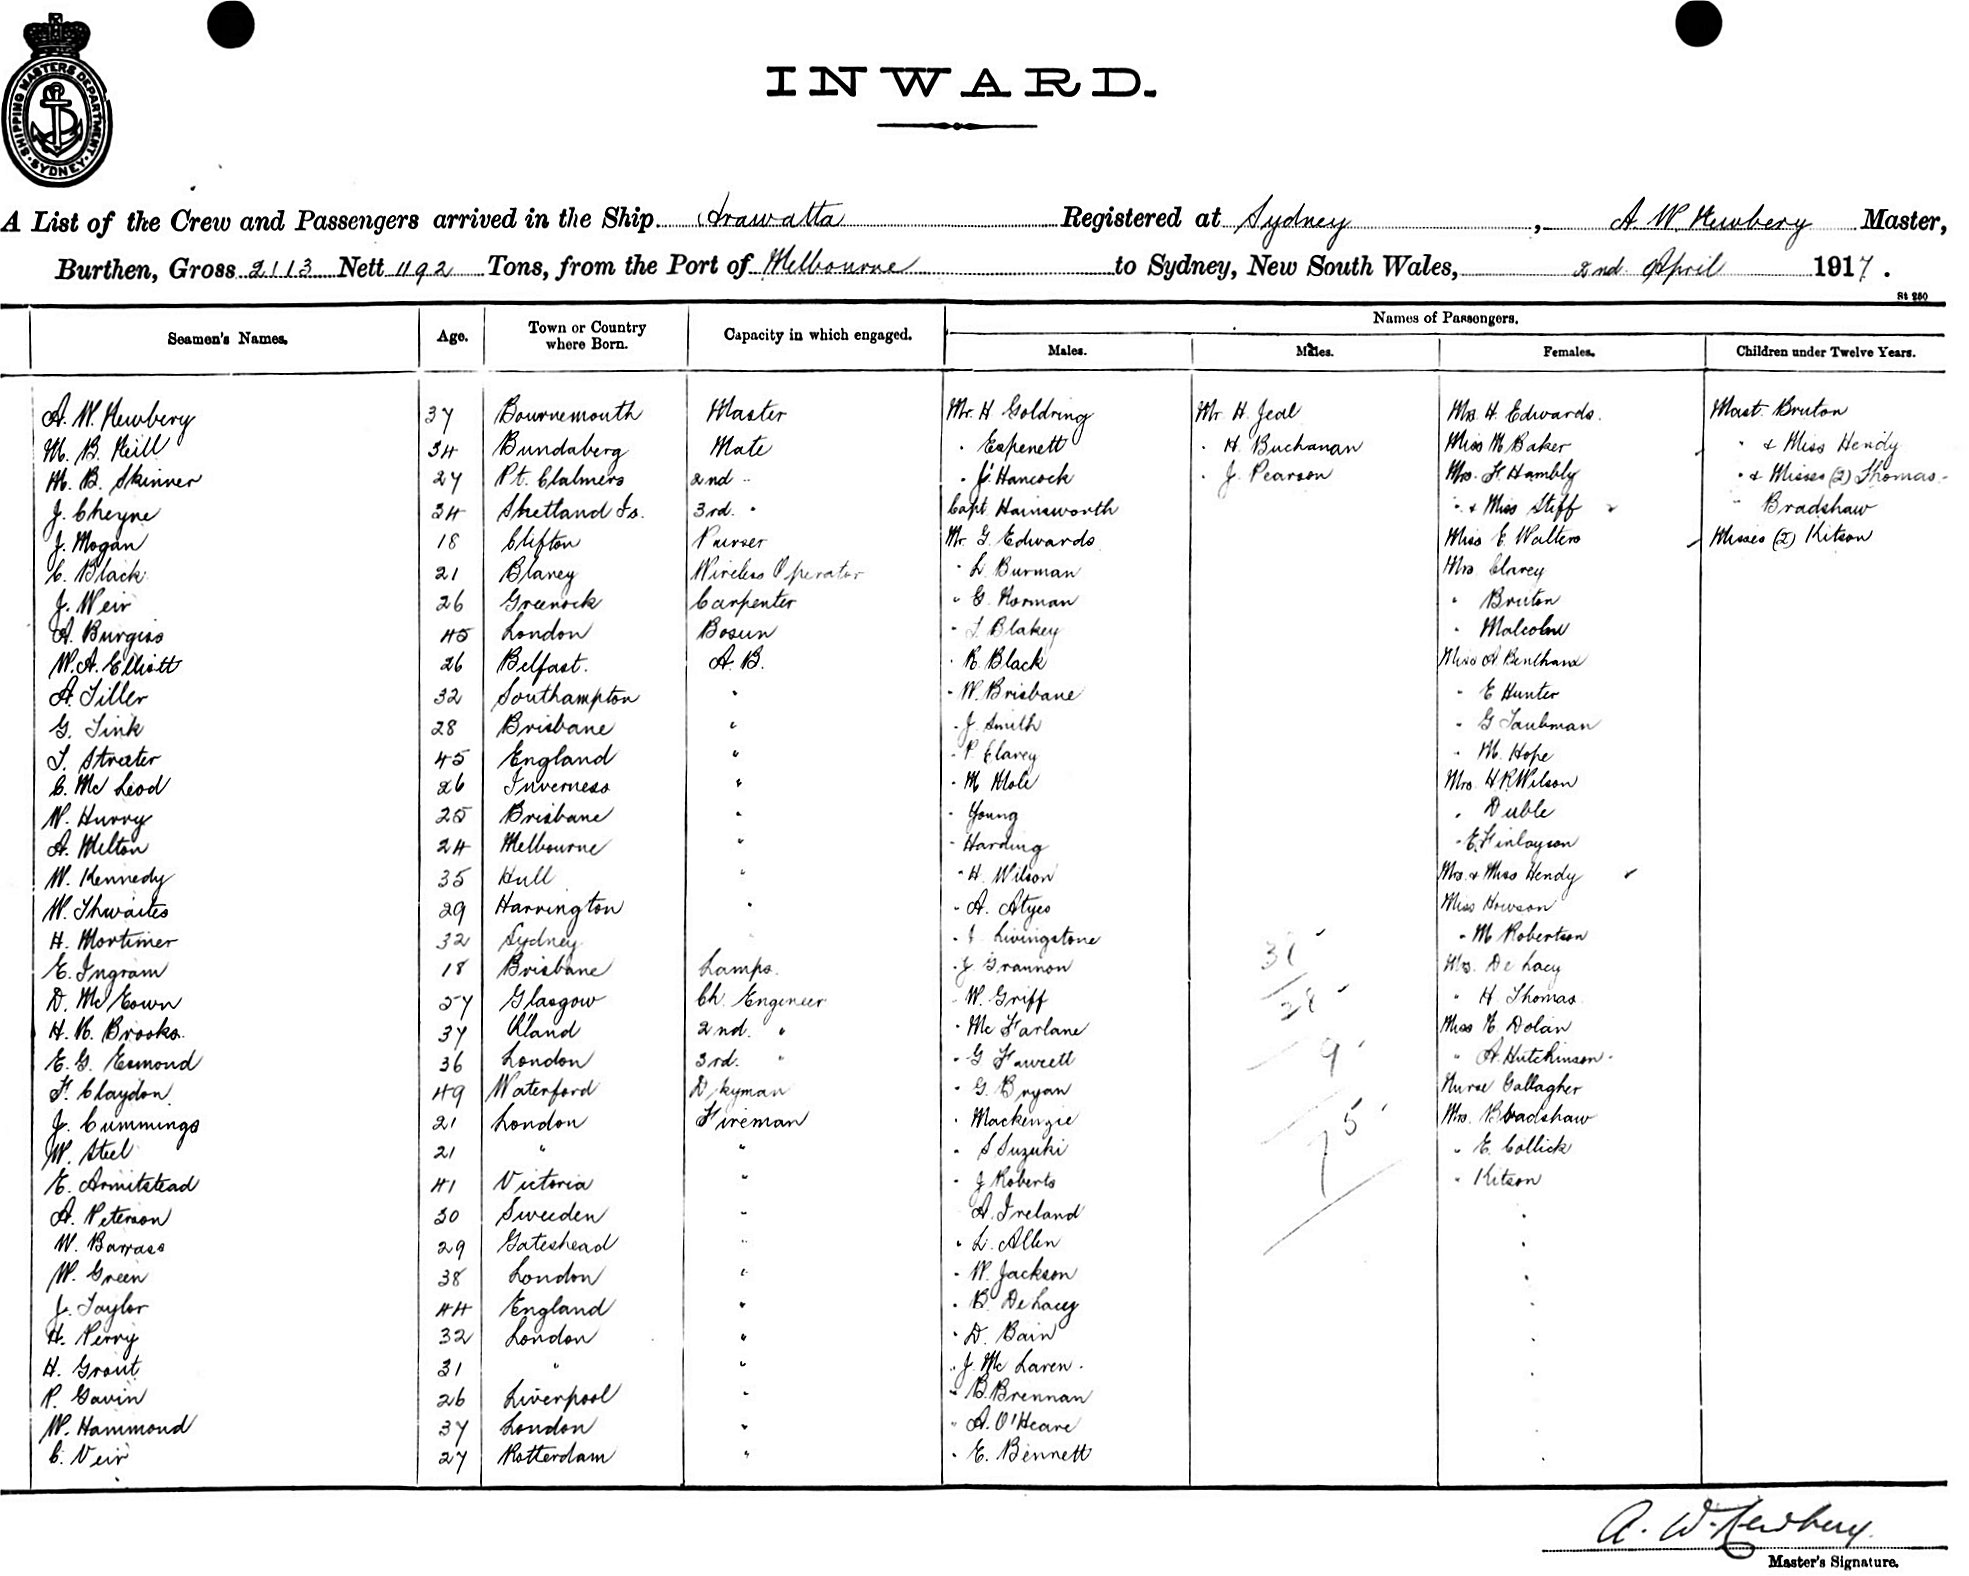 SHIPPING MASTERS DEPARTMENT
SYDNEY
INWARD.
A List of the Crew and Passengers arrived in the Ship Arawatta Registered at Sydney, A. W. Newbery Master,
Burthen, Gross 2113 Nett 1192 Tons, from the Port of Melbourne to Sydney, New South Wales, 2nd April 1917.
St 250
Seamen's Names. Age. Town or Country where Born. Capacity in which engaged. Names of Passengers.
Males. Males. Females. Children under Twelve Years.
A. W. Newbery 37 Bournemouth Master Mr. H Goldring Mr. H. Jeal Mrs. H. Edwards. Mast. Bruton
M. B. Neill 34 Bundaberg Mate " Espenett " H. Buchanan Miss M Baker " & Miss Hendy
M. B. Skinner 27 Pt. Chalmers 2nd " " J. Hancock " J. Pearson Mrs. F Hambly " & Misses (2) Thomas
J. Cheyne 34 Shetland Is. 3rd. " Capt. Hainsworth " & Miss Stiff " Bradshaw
J. Mogan 18 Clifton Purser Mr. G. Edwards Miss E. Walters Misses (2) Kitson
C. Black 21 Blaney Wireless Operator " L. Burman Mrs Clarey
J. Weir 26 Greenock Carpenter " G. Norman " Bruton
A. Burgiss 45 London Bosun " T. Blakey " Malcolm
W. A. Elliott 26 Belfast. A. B. " R. Black Miss A
A. Tiller 32 Southampton " " W. Brisbane " E Hunter
G. Tink 28 Brisbane " " J. Smith " G Taubman
T. Strater 45 England " " P. Clarey " M. Hope
C. Mc Leod 26 Inverness " " M Mole Mrs. H R Wilson
W. Hurry 25 Brisbane " " Young " Duble
A. Melton 24 Melbourne " " Harding " E. Finlayson
W. Kennedy 35 Hull " " H. Wilson Mrs. & Miss Hendy
W. Thwaites 29 Harrington " " A. Atyeo Miss Howson
H. Mortimer 32 Sydney " Livingstone " M Robertson
E. Ingram 18 Brisbane Lamps. " J. Grannon Mrs. De Lacy
D. Mc Eown 57 Glasgow Ch. Engineer " W. Griff " H. Thomas
H. R. Brooks. 37 Oland 2nd. " " Mc Farlane Miss E. Dolan
E. G. Esmond 36 London 3rd. " " G Fawcett 9 " A. Hutchinson
F. Claydon 49 Waterford Dkyman " G. Bryan Nurse Gallagher
J. Cummings 21 London Fireman " Mackenzie 75 Mrs. Bradshaw
W. Steel 21 " " " S Suzuki " E. Collick
E. Armitstead 41 Victoria " " J Roberts " Kitson
A. Peterson 30 Sweeden " A. Ireland
W. Barrass 29 Gateshead " " L. Allen
W. Green 38 London " " W. Jackson
J. Taylor 44 England " " B. De Lacy
H. Perry 32 London " " D. Bain
H. Grout 31 " " " J. Mc Laren
P. Gavin 26 Liverpool " " B. Brennan
W. Hammond 37 London " " A. O'Heare
C. Veir 27 Rotterdam " " E. Bennett
A. W. Newbery
Master's Signature.